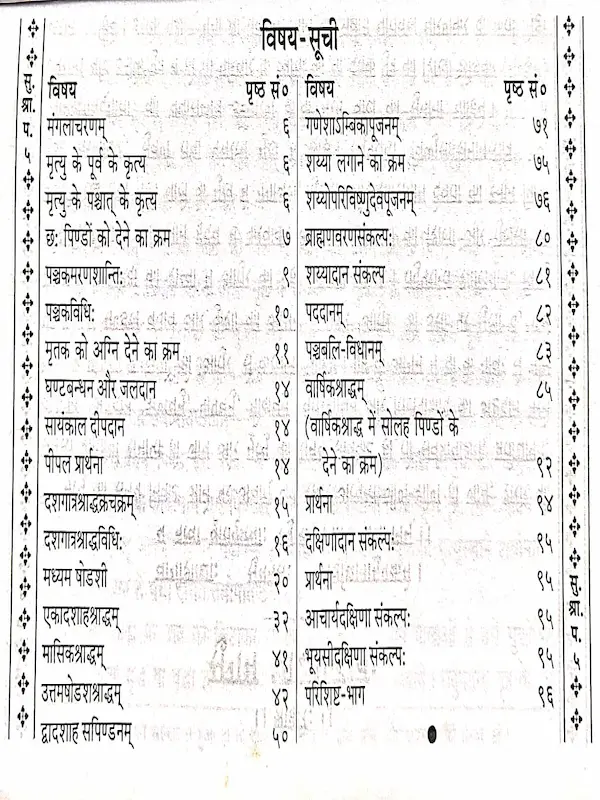 विषय-सूची
सु.
श्रा.
प.
५
विषय पृष्ठ सं०
मंगलाचरणम् ६
मृत्यु के पूर्व के कृत्य ६
मृत्यु के पश्चात् के कृत्य ६
छः पिण्डों को देने का क्रम ७
पञ्चकमरणशान्तिः ९
पञ्चकविधिः १०
मृतक को अग्नि देने का क्रम ११
घण्टबन्धन और जलदान १४
सायंकाल दीपदान १४
पीपल प्रार्थना १४
दशगात्रश्राद्धक्रचक्रम् १५
दशगात्रश्राद्धविधिः १६
मध्यम षोडशी २०
एकादशाहश्राद्धम् ३२
मासिकश्राद्धम् ४१
उत्तमषोडशश्राद्धम् ४२
द्वादशाह सपिण्डनम् ५०
विषय पृष्ठ सं०
गणेशाऽम्बिकापूजनम् ७१
शय्या लगाने का क्रम ७५
शय्योपरिविष्णुदेवपूजनम् ७६
ब्राह्मणवरणसंकल्पः ८०
शय्यादान संकल्प ८१
पददानम् ८२
पञ्चबलि-विधानम् ८३
वार्षिकश्राद्धम् ८५
(वार्षिकश्राद्ध में सोलह पिण्डों के
देने का क्रम) ९२
प्रार्थना ९४
दक्षिणादान संकल्पः ९५
प्रार्थना ९५
आचार्यदक्षिणा संकल्पः ९५
भूयसीदक्षिणा संकल्पः ९५
परिशिष्ट-भाग ९६
सु.
श्रा.
प.
५